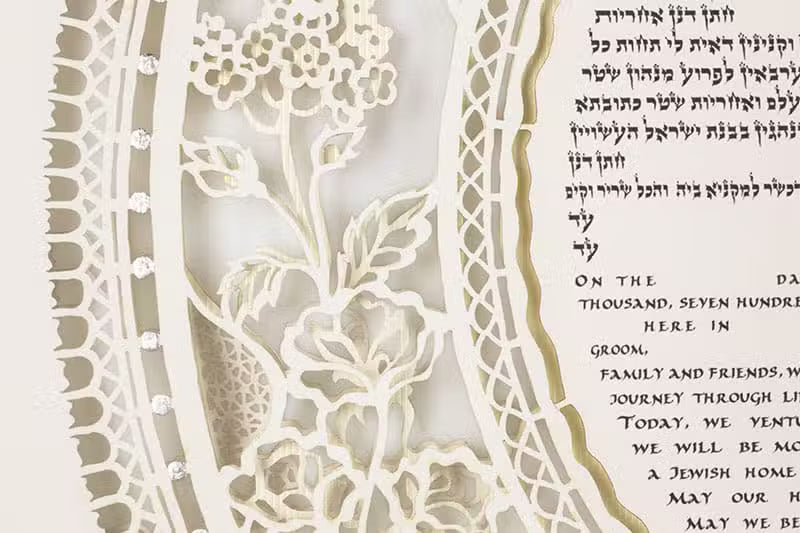 חתן דנן אחריות
וקנינין דאית לי תחות כל
ערבאין לפרוע מנהון שטר
עלם ואחריות שטר כתובתא
נהגין בבנת ישראל העשויין
חתן דנן
דכשר למקניא ביה והכל שריר וקים
עד
עד
ON THE DA
THOUSAND, SEVEN HUNDRE
HERE IN
GROOM,
FAMILY AND FRIENDS, W
JOURNEY THROUGH LI
TODAY, WE VENTU
WE WILL BE MO
A JEWISH HOME
MAY OUR H
MAY WE BE